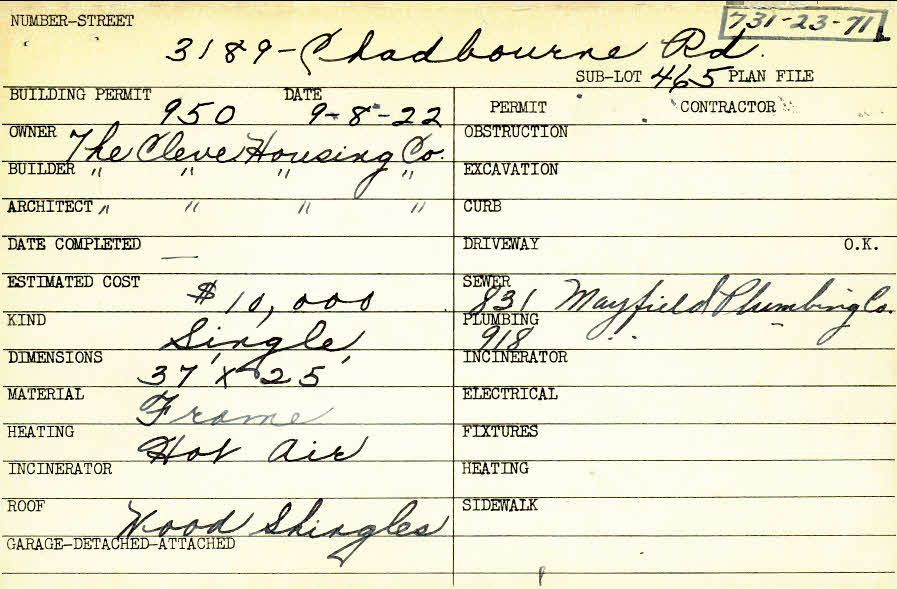 NUMBER-STREET
731-23-71
3189-Chadbourne Rd.
SUB-LOT 465 PLAN FILE
BUILDING PERMIT 950 DATE 9-8-22
PERMIT CONTRACTOR
OWNER The Cleve Housing Co.
OBSTRUCTION
BUILDER " " " "
EXCAVATION
ARCHITECT " " " "
CURB
DATE COMPLETED —
DRIVEWAY O.K.
ESTIMATED COST $10,000
SEWER 831 Mayfield Plumbing Co.
KIND Single
PLUMBING 918 " "
DIMENSIONS 37' x 25'
INCINERATOR
MATERIAL Frame
ELECTRICAL
HEATING Hot Air
FIXTURES
INCINERATOR
HEATING
ROOF Wood Shingles
SIDEWALK
GARAGE-DETACHED-ATTACHED